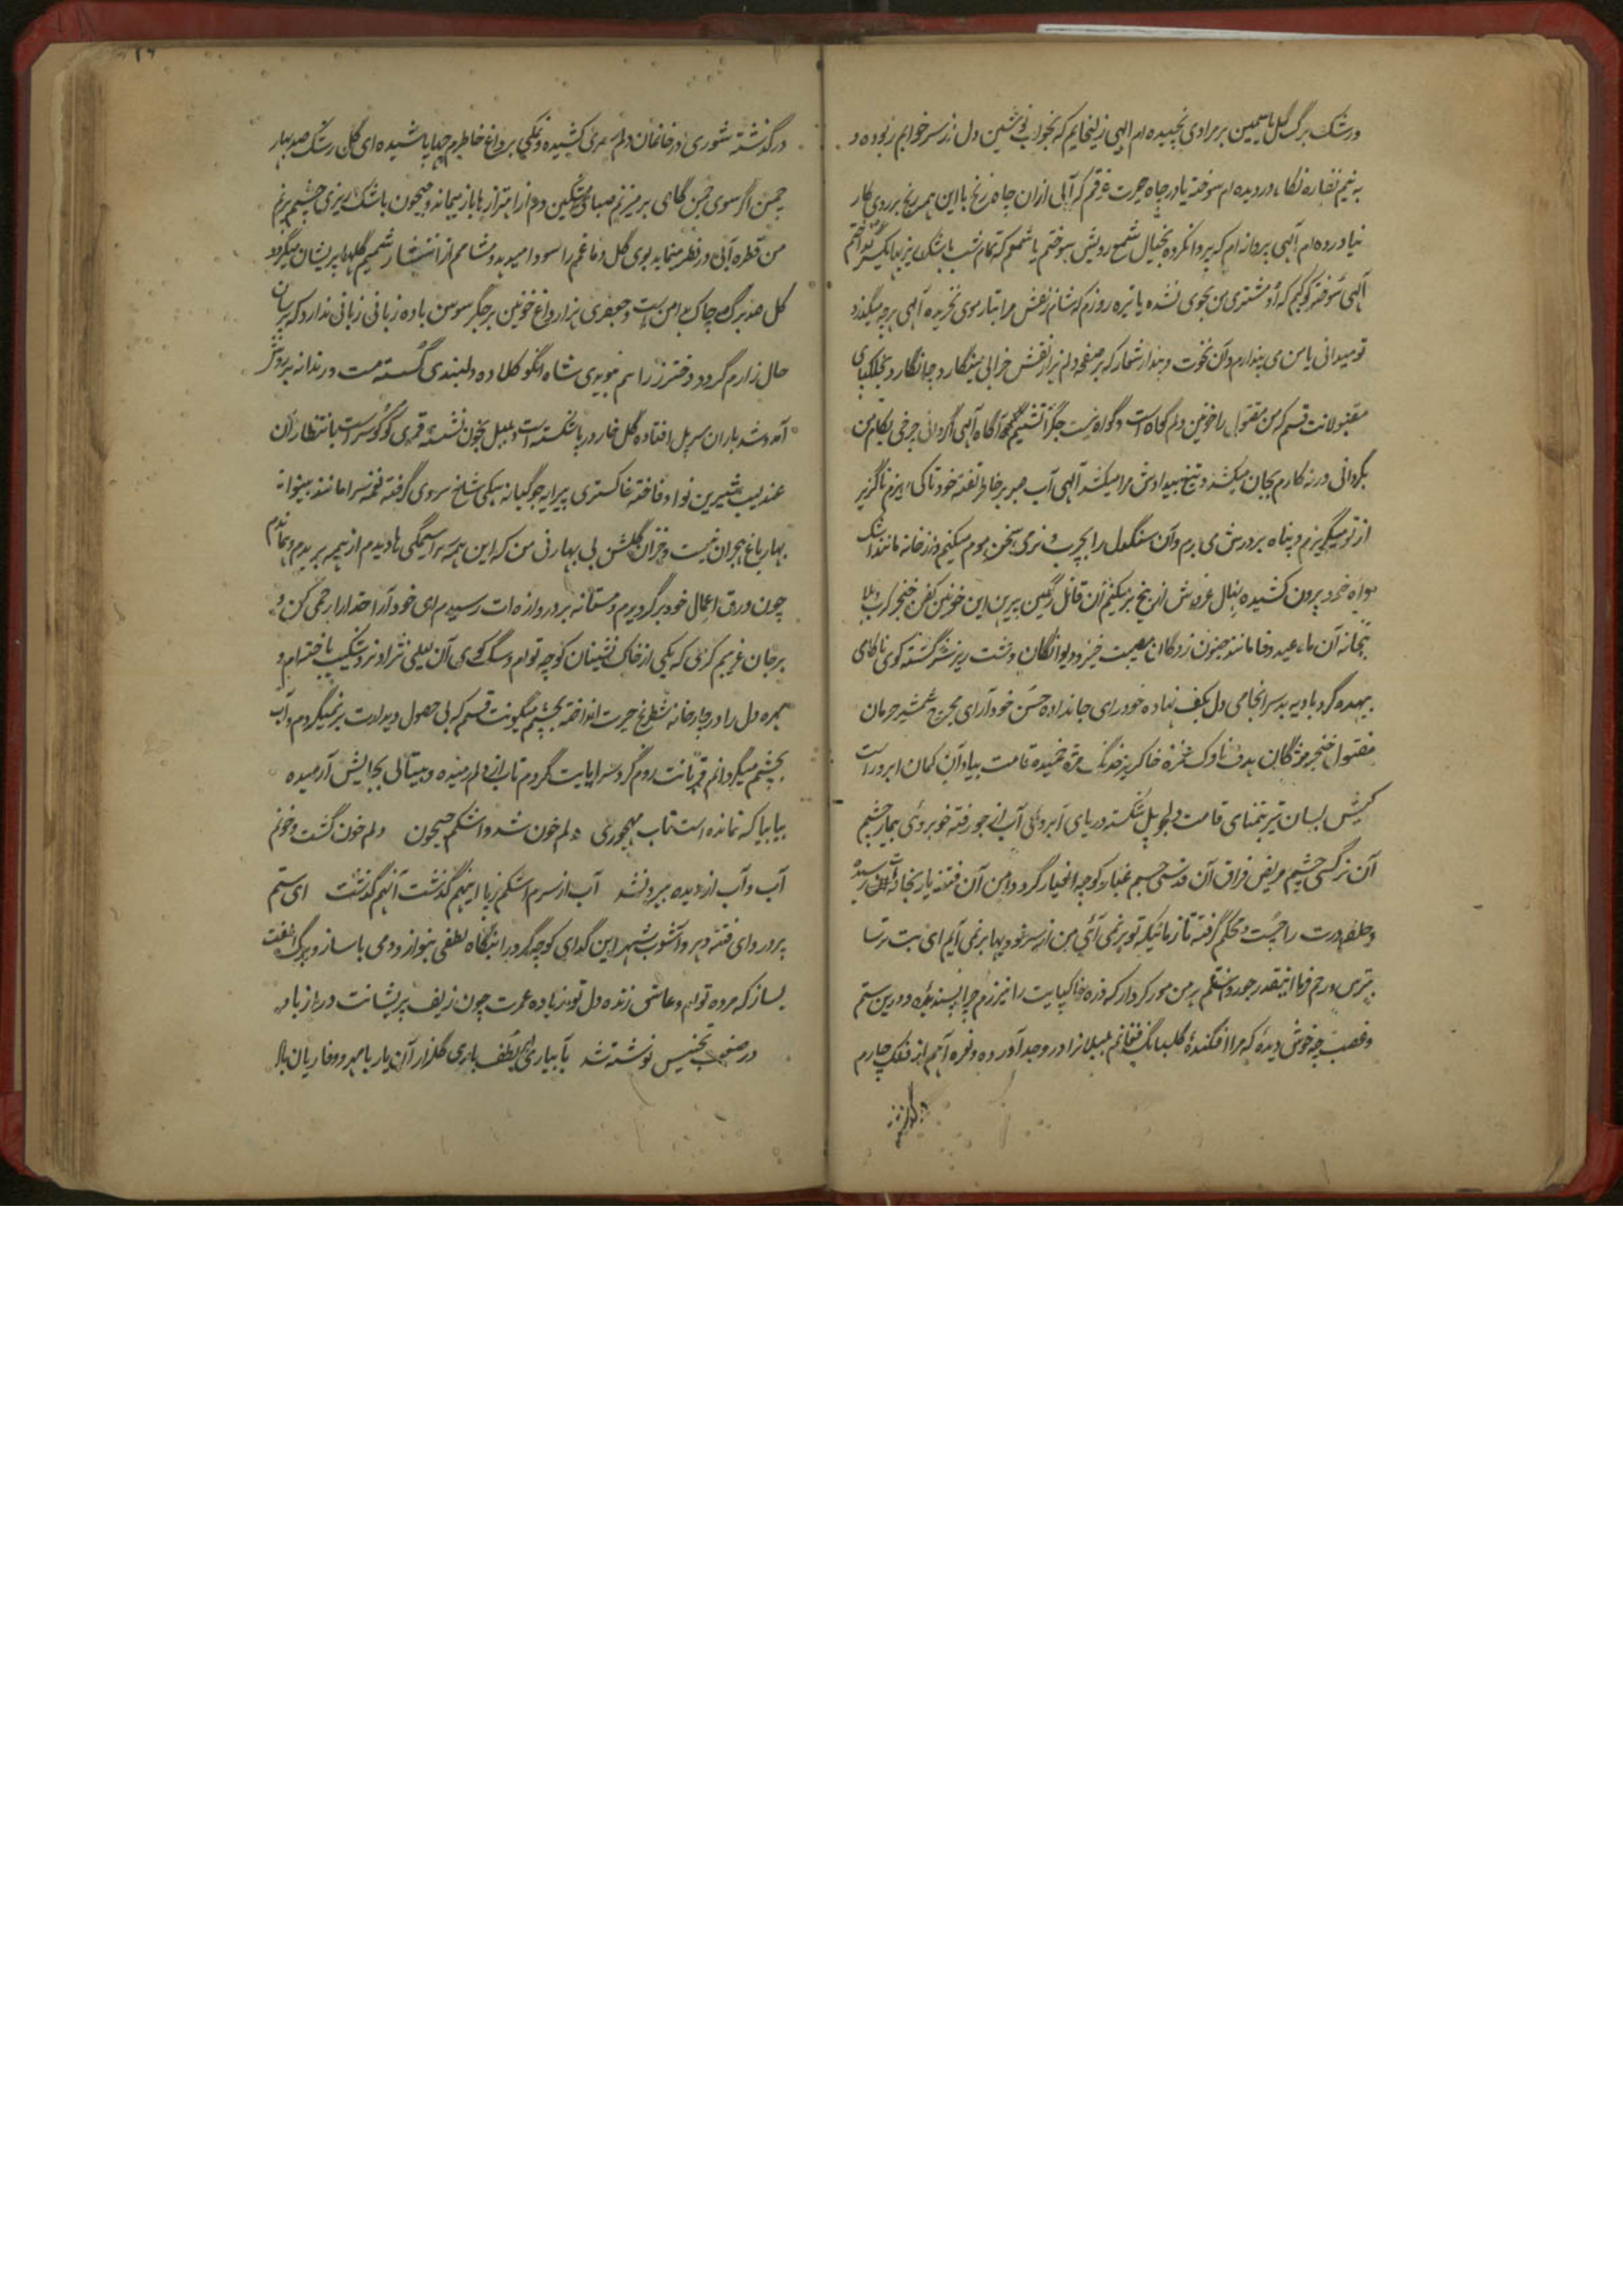 و رشک برگ گل یاسمین بر مرادی نچیده ام الهی زلیخایم که بخواب نوشین دل از سر خوابم ربوده و
به نیم نظاره نگاه دزدیده ام سوخته یا در چاه حیرت غرقم که آبی ازان چاه زنخ با این همه رنج بر روی کار
نیاورده ام الهی پروانه ام که پروا نکرده بخیال شمع رویش سوختم یا شمعم که تمام شب باشک ریزیها
الهی که او مشتری من بجوی نشده یا تیره روزم که شانه زلفش مرا بتار موی نخریده الهی هرچه میگذرد
تو میدانی یا من می پندارم و آن نخوت و پندار شعار که بر صفحه دلم نقش خرابی مینگارد
مقبولانت قسم که من مقتول را خونین دلم گواه است و گواه نیست جگر آگاه الهی اگر دانی چرخی بکام من
بگردانی ورنه کارم بجان میکشد و تیغ بیدادش مرا میکشد الهی آب صبر بر خاطر تفته خود تا کی ریزم ناگزیر
از تو میگریزم و پناه بدرش می برم و آن سنگدل را بچرب و نرمی سخن موم میکنم و از خانه مانند اشک
خود بیرون کشیده نهال غرورش از بیخ بر میکنم آن قاتل رنگین پیرهن این خونین کفن خنجر کربلا
بخانه آن ماه عید وفا مانند جنون زدگان مصیبت خیز و دیوانگان دشت ریز سرگشته کوی ناکامی
بیهده گرد بادیه بد سرانجامی دل بکف نهاده خود رای جان داده حسن خود آرای مجروح شمشیر حرمان
مقتول خنجر مژگان هدف ناوک غمزه خاکریز خدنگ مژه خمیده قامت بیاد آن کمان ابرو راست
کیش بسان تیر بتمنای قامت دلجو پل شکسته دریای آبروی آب از جو رفته خوبروئی بیمار چشم
آن نرگسی چشم مریض فراق آن قدسی جسم غبار کوچه اغیار گرد دامن آن فتنه یار بخانه رسید
و حلقه درت را چست و محکم گرفته تا زمانیکه تو برنمی آئی من از سر نو و پا برنمی آیم ای بت ترسا
بترس و رحم فرما اینقدر جور و ستم بر من مور کردار که ذره خاکپایت را نیرزم چرا پسندیدۀ و درین ستم
و غضب چه خوش دیدۀ که مرا افگندۀ گلبانگ فغانم بلبلانرا در وجد آورده و نعره آهم از فلک چارم
درگذشته
درگذشته شوری در خانمان دلم سری کشیده و نمکی بر داغ خاطرم چرا پاشیده ای گل رشک صد بهار
چمن اگر سوی چمن گاهی بر میزنم صبای مشکین دم از اهتزازها باز میماند و جیحون باشک ریزی چشم پرنم
من قطره آبی در نظر مینماید بوی گل دماغم را سودا میدهد و مشامم از انتشار شمیم گلها پریشان میگردد
گل صد برگ چاک بدامن است و جعفری هزار داغ خونین بر جگر سوسن با ده زبانی زبانی ندارد که پرسان
حال زارم گردد دختر رز را سم موبدی شاه انگور کلاده دلبندی گسسته مست و رندانه بر دوش
آمد و شد یاران سر پل افتاده گل خار در پا شکسته است و بلبل بخون نشسته قمری کوکو سراست بانتظار آن
عندلیب شیرین نوا و فاخته خاکستری پیرایه جوگیانه بیکی شاخ سروی گرفته نغمه سرا مانند بینوا
بهار باغ هجران نیست و خزان گلشن بی بهارنی من که این همه سراسیمگی ها دیدم از همه بریدم
چون ورق اعمال خود برگردیدم و مستانه بر دروازه ات رسیدم ای خود آرا خدا را رحمی کن و
بر جان غریبم کرمی که یکی از خاک نشینان کوچه توام و سگ کوی آن لیلی نژاد نرد شکیب باخته ام و
مهره دل را در چارخانه شطرنج حیرت انداخته بچشم میگونت قسم که بی حصول دیدارت برنمیگردم و آب
بچشم میگردانم قربانت روم گرد سراپایت گردم تاب از دلم رمیده و بیتابی بجایش آرمیده
بیا بیا که نمانده است تاب مهجوری دلم خون شد و اشکم جیحون دلم خون گشت و خونم
آب و آب از دیده بیرون شد آب از سرم اشکم ز پا اینهم گذشت آنهم گذشت ای ستم
پرور و ای فتنه دهر و آشوب شهر این گدای کوچه گرد را بنگاه لطفی بنواز و دمی با ساز و برگ الفت
بساز که مرده توام و عاشق زنده دل تو زیاده عمرت چون زلف پریشانت دراز باد
در صنعت تجنیس نوشته شد بآبیاری لطف باری گلزار آن یار با مهر و وفا ریان بالا